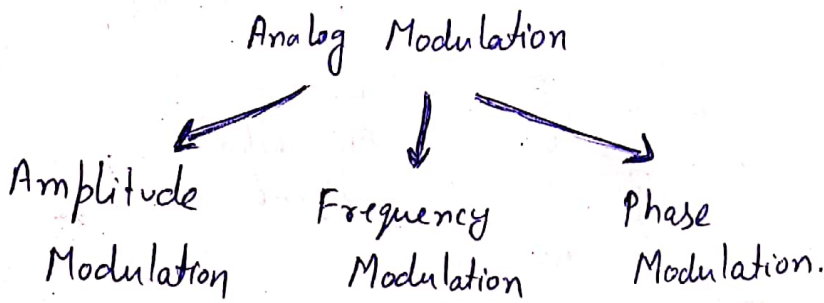 Analog Modulation
Amplitude
Modulation
Frequency
Modulation
Phase
Modulation.